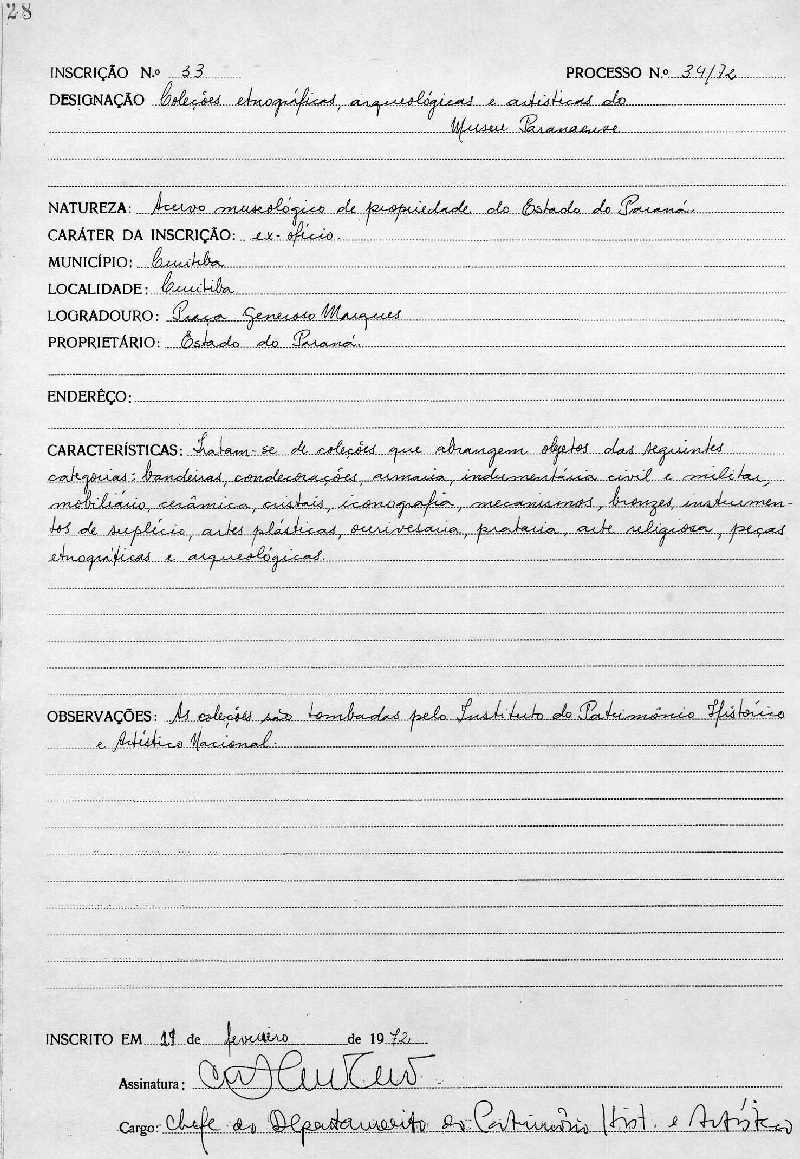 28
INSCRIÇÃO N.º 33 PROCESSO N.º 39/72
DESIGNAÇÃO Coleções etnográficas, arqueológicas e artísticas do
Museu Paranaense
NATUREZA: Acervo museológico de propriedade do Estado do Paraná.
CARÁTER DA INSCRIÇÃO: ex-ofício.
MUNICÍPIO: Curitiba
LOCALIDADE: Curitiba
LOGRADOURO: Praça Generoso Marques
PROPRIETÁRIO: Estado do Paraná.
ENDERÊÇO:
CARACTERÍSTICAS: Tratam-se de coleções que abrangem objetos das seguintes
categorias: bandeiras, condecorações, armaria, indumentária civil e militar,
mobiliário, cerâmica, cristais, iconografia, mecanismos, bronzes, instrumen-
tos de suplício, artes plásticas, ourivesaria, prataria, arte religiosa, peças
etnográficas e arqueológicas.
OBSERVAÇÕES: As coleções são tombadas pelo Instituto do Patrimônio Histórico
e Artístico Nacional.
INSCRITO EM de fevereiro de 1972
Assinatura:
Cargo: Chefe do Departamento do Patrimônio Hist. e Artístico